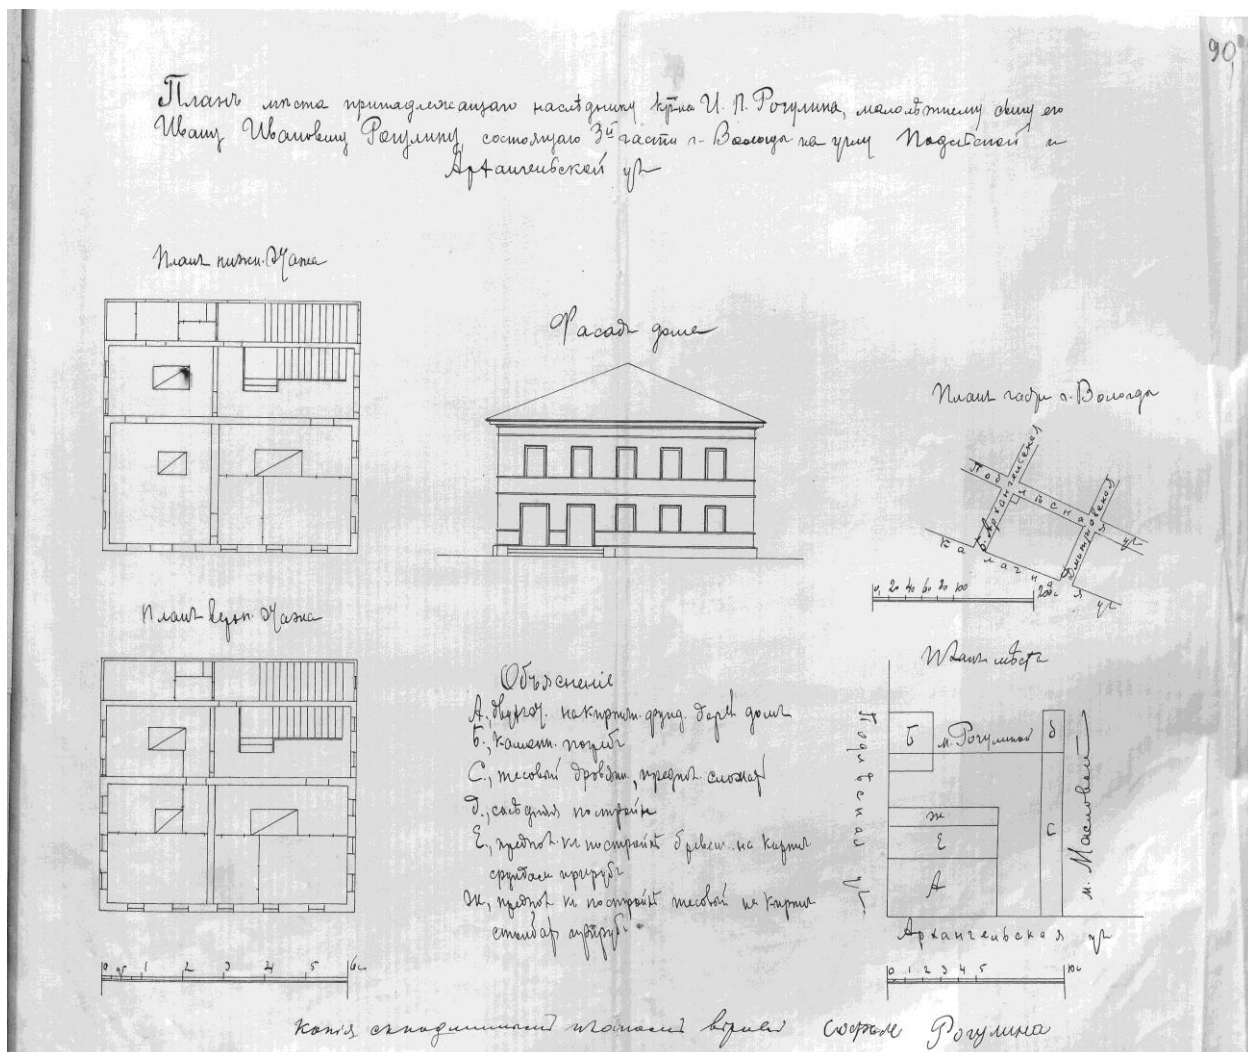 90
Планъ мѣста принадлежащаго наслѣднику купца И. П. Рогулина, малолѣтнему сыну его
Ивану Ивановичу Рогулину, состоящаго 3й части г. Вологды на углу Подлѣсной и
Архангельской ул
Планъ нижн. этажа
Фасадъ дома
Планъ части г. Вологды
Подлѣсная ул
Б. Архангельская
Дмитріевская
Калачная ул
0 20 40 60 80 100 200 с
Планъ верхн. этажа
Объясненіе
А, двухэт. на кирпичн. фунд. дерев домъ
Б, каменн. погребъ
С, тесовый дровяникъ, предпол. сломать
д, сосѣдняя постройка
Е, предпол. къ постройкѣ бревен. на кирпич
фундам прирубъ
Ж, предпол къ постройкѣ тесовый на кирпич
столбах
Планъ мѣста
Подлѣсная ул
Б
м. Рогулиной
д
ж
Е
А
с
м. Масловой
Архангельская ул
0 1 2 3 4 5 6 с
0 1 2 3 4 5 10 с
Копія съ подлиннымъ планомъ вѣрна Софья Рогулина